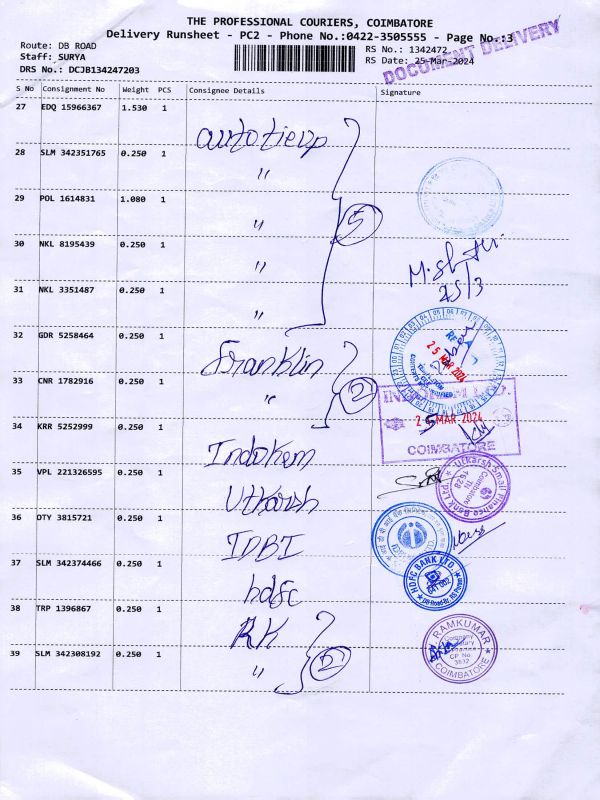 THE PROFESSIONAL COURIERS, COIMBATORE
Delivery Runsheet - PC2 - Phone No.:0422-3505555 - Page No.:3
Route: DB ROAD
RS No.: 1342472
Staff: SURYA
RS Date: 25-Mar-2024
DRS No.: DCJB134247203
DOCUMENT DELIVERY
S No Consignment No Weight PCS Consignee Details Signature
27 EDQ 15966367 1.530 1
28 SLM 342351765 0.250 1 "
29 POL 1614831 1.080 1 "
5
30 NKL 8195439 0.250 1 "
25/3
31 NKL 3351487 0.250 1 "
32 GDR 5258464 0.250 1 Franklin
25 MAR 2024
33 CNR 1782916 0.250 1 "
2
MAR 2024
COIMBATORE
34 KRR 5252999 0.250 1 Indokem
35 VPL 221326595 0.250 1 Utkarsh
Utkarsh Small Finance Bank Ltd.
Coimbatore
1628
36 DTY 3815721 0.250 1 IDBI
37 SLM 342374466 0.250 1 hdfc
HDFC BANK LTD.
38 TRP 1396867 0.250 1 RK
RAMKUMAR
Company Secretary
CP No.
3832
COIMBATORE
39 SLM 342308192 0.250 1 "
2